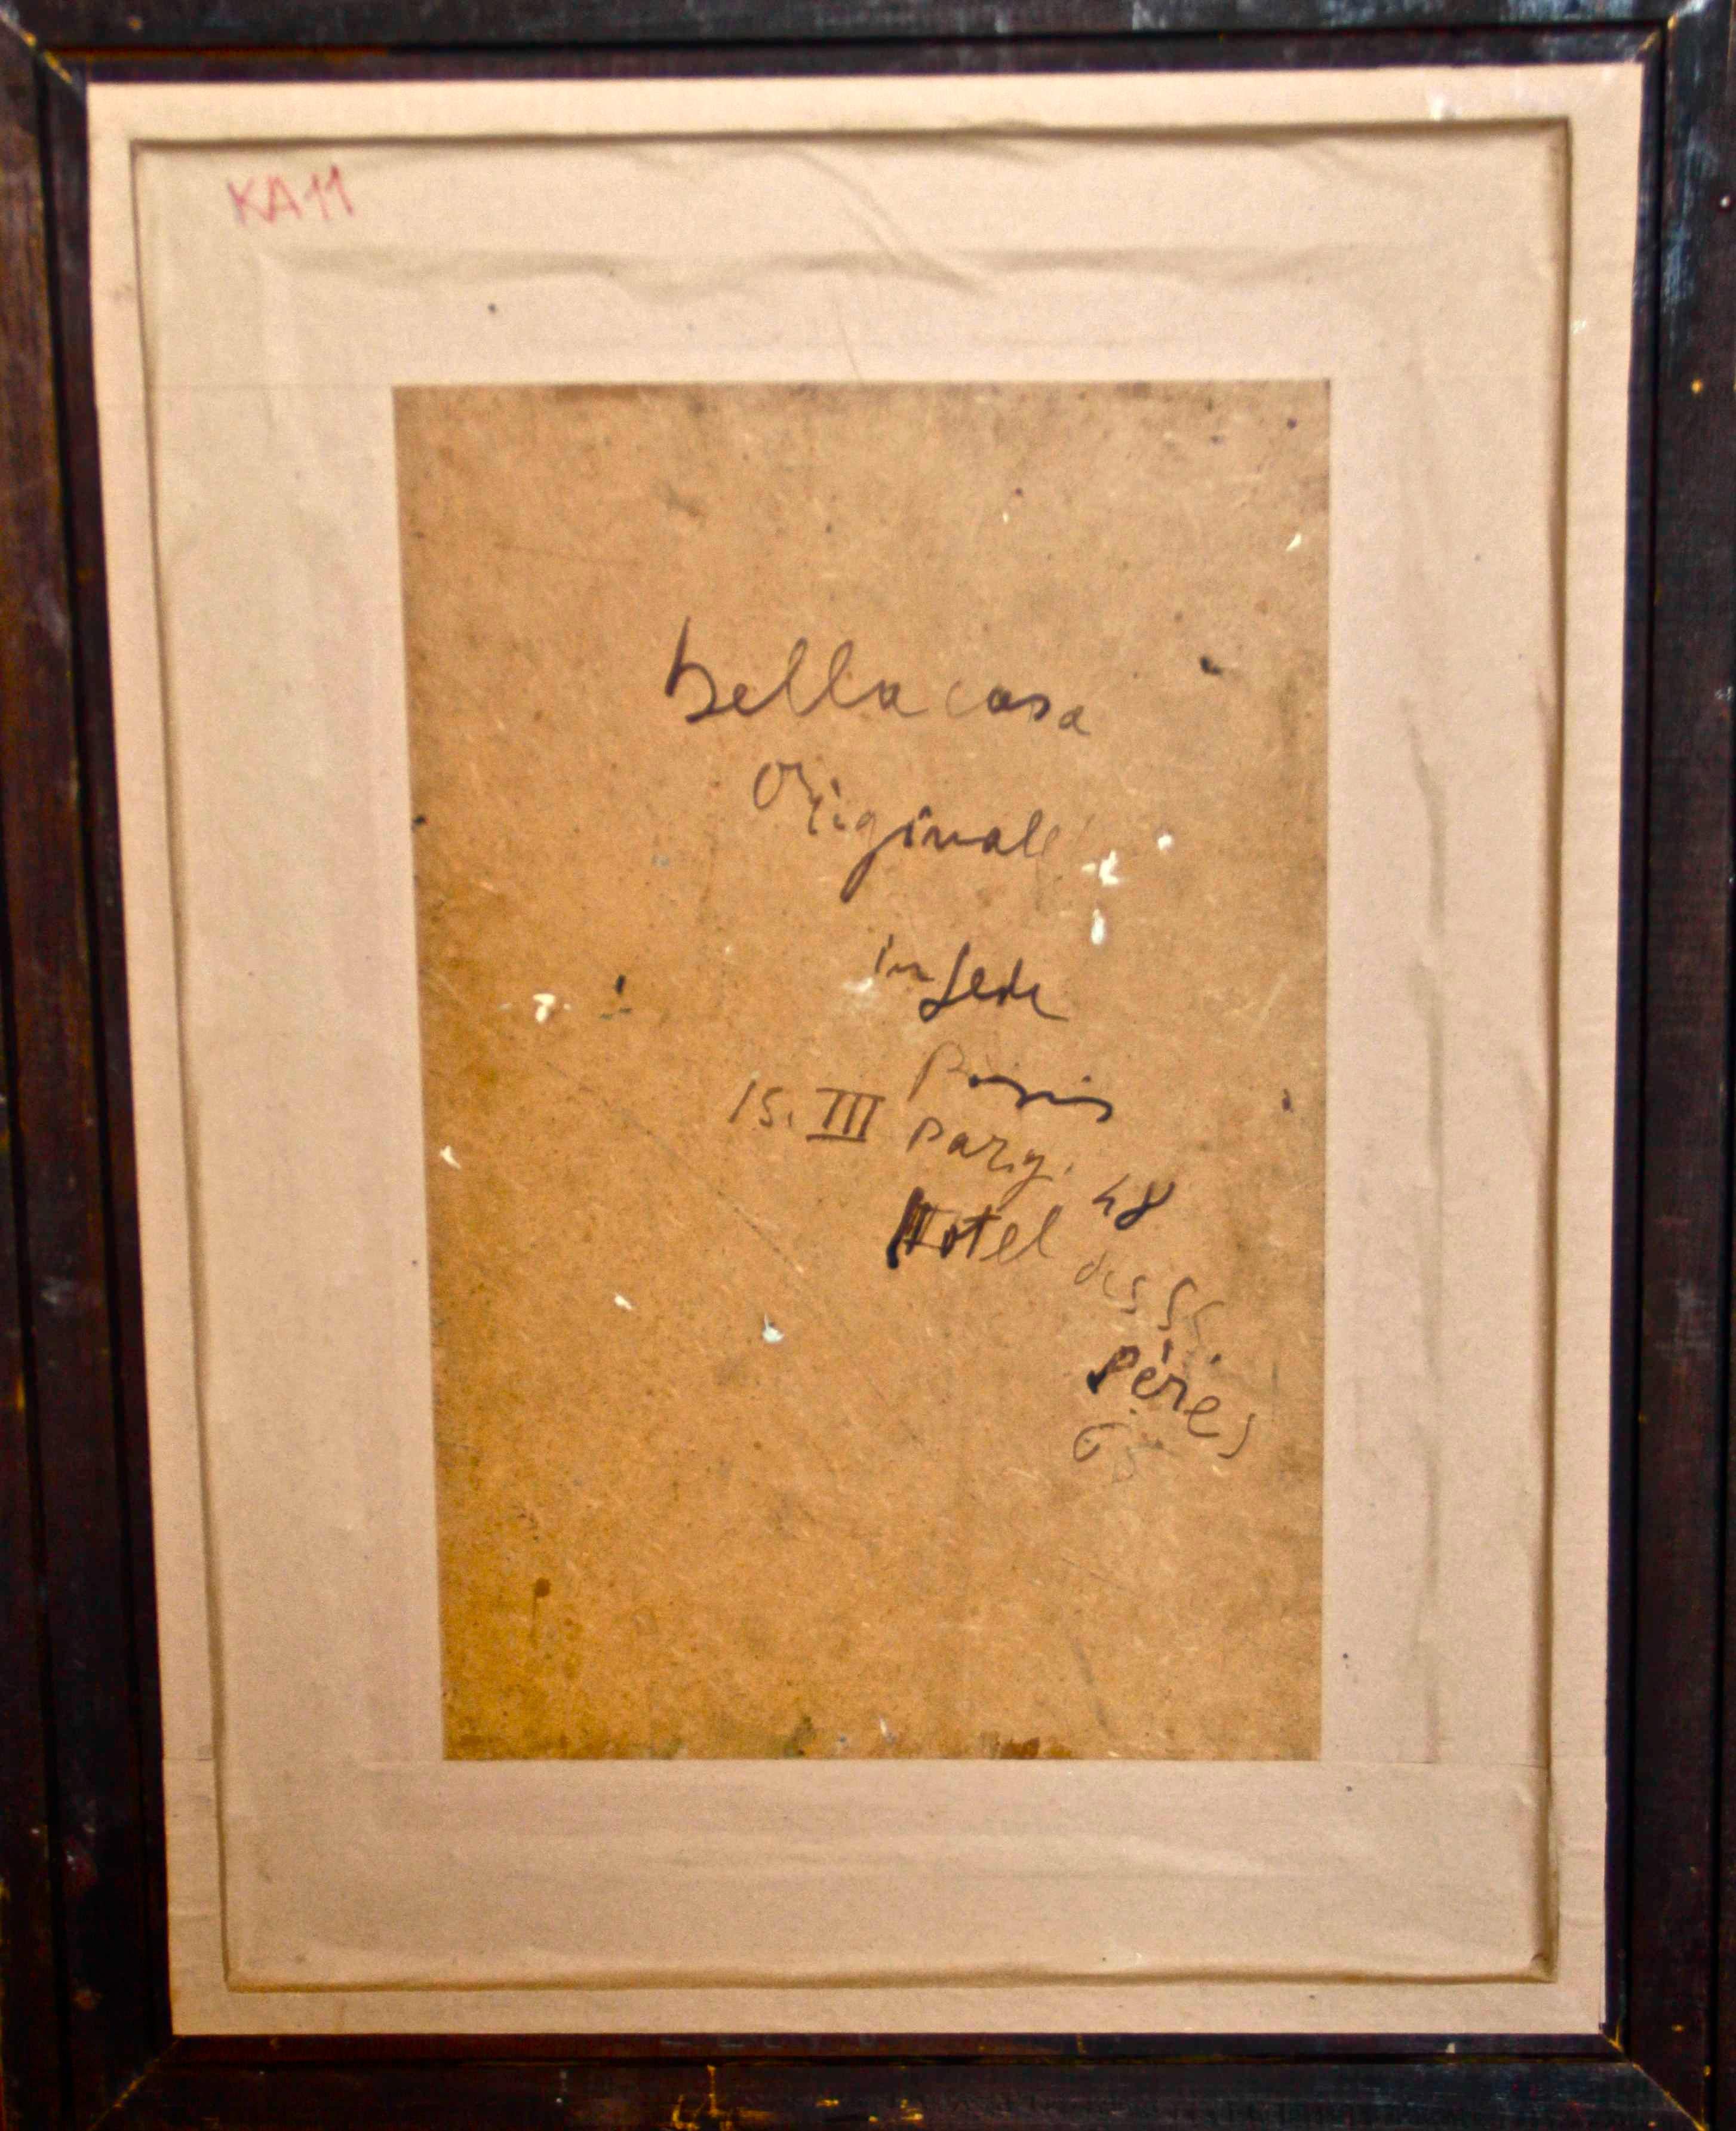 KA11
bella casa
Originale
in fede
Parigi
15. III Parg. 48
Hotel des SS
Pères
65